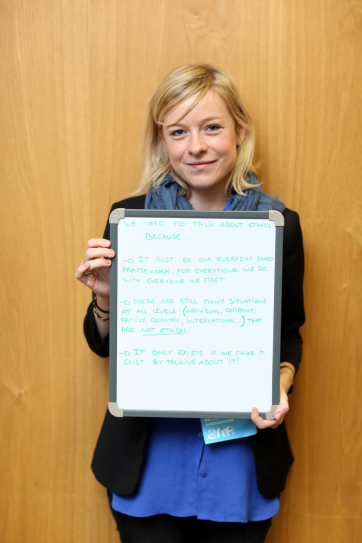 WE NEED TO TALK ABOUT ETHICS
BECAUSE...
→ IT MUST BE OUR EVERYDAY SHARED
FRAMEWORK, FOR EVERYTHING WE DO,
WITH EVERYONE WE MEET.
→ THERE ARE STILL MANY SITUATIONS
AT ALL LEVELS (INDIVIDUAL, COMPANY,
FAMILY, COUNTRY, INTERNATIONAL...) THAT
ARE NOT ETHICAL
→ IT ONLY EXISTS IF WE MAKE IT
EXIST BY TALKING ABOUT IT!